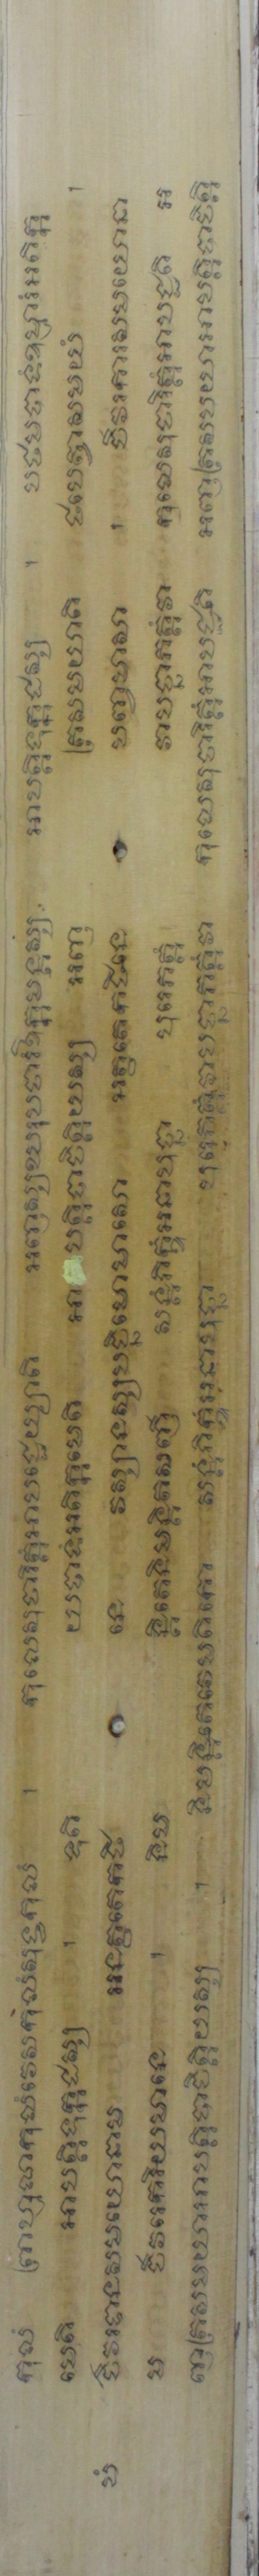 កុលំ ព្រាហ្មណកុលំវេសកុលំសុទ្ទកុលំ ។ កុលេសុចារិត្តំអាបជ្ជេយ្យាតិ អញស្សឃរុបចារំឱក្កមន្តស្ស អាបត្តិទុក្កដស្ស ។ បឋមបាទំឧម្មារំអតិក្ក
មេតិ អាបត្តិទុក្កដស្ស ។ ទុតិ យបាទំអតិក្កមេតិ អាបត្តិបាចិត្តិយស្ស អញ ត្រសមយាតិ ឋបេត្វាសមយំ ។
ចំ ចីវរទានសមយោនាម អនត្ថតេកឋិ នេ វស្សានស្សបច្ឆិមោមាសោ អត្ថតេកឋិនេ បញ្ចមាសា ។ ចីវរការសមយោនា
ម ចីវរេករិយមានេ ។ និម ន្តិតេនិមន្តិតសញី សន្តំភិក្ខុំអនាបុច្ឆា បុរេភត្តំ វាបច្ឆាភត្តំវា កុលេសុចារិត្តំអាបជ្ជតិ អ
ញត្រសមយាអាបត្តិបាចិត្តិយស្ស ។ និមន្តិតេវេមតិកោ សន្តំភិក្ខុំអនាបុច្ឆា បុរេភត្តំវាបច្ឆាភត្តំវា កុលេសុចារិត្តំអាបជ្ជតិ អញត្រសមយាអាបត្តិបាចិត្តិ